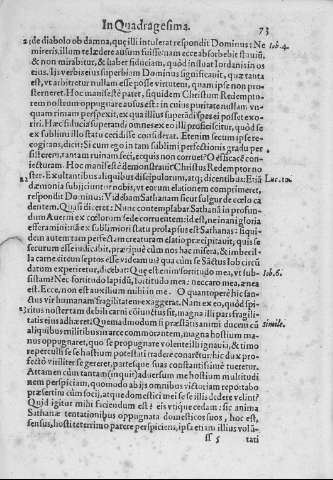 In Quadragesima. 73
2; de diabolo ob damna, quę illi intulerat respondit Dominus: Ne Iob. 4.
mireris, illum velędere ausum fuisse nam ecce absorbebit fluuiū,
& non mirabitur, & habet fiduciam, quòd influat Iordanis in os
eius. Iis verbis eius superbiam Dominus significauit, quæ tanta
est, vt arbitretur nullam esse posse virtutem, quam ipse non pro
sterneret. Hoc manifestè patet, siquidem Christum Redempto-
rem nostrum oppugnare ausus est: in cuius puritate nullam vn-
quam rimam perspexit, ex qua illius superādi spes ei posset exo-
riri. Hæc fiducia superandi omnes ex eo illi proficiscitur, quòd se
ex sublimi illo statu cecidisse considerat. Etenim secum ipse co-
gitans, dicit: Si cum ego in tam sublimi perfectionis gradu per
sisterem, tantam ruinam feci, ecquis non corruet? O efficacē con-
iecturam. Hoc manifestè demonstrauit Christus Redemptor no
ster. Exultantibus aliquibus discipulorum, atq; dicentibus: Etiā Luc. 10.
dæmonia subijciuntur nobis, vt eorum elationem comprimeret,
respondit Dominus: Videbam Sathanam sicut fulgur de cœlo ca
dentem. Quasi diceret: Nunc contemplabar Sathanā in profun-
dum Auerni ex cœlorum sede corruentem: id est, ne inani gloria
efferamini: nā ex sublimiori statu prolapsus est Sathanas: si qui-
dem autem tam perfectam creaturam elatio præcipitauit, quis se
securum esse iudicabit, præcipuè cùm nos hac misera, & imbecil-
la carne circumseptos esse videamus? qua cùm se Sāctus Iob circū
datum experiretur, dicebat: Quę est enim fortitudo mea, vt sub- Iob. 6.
sistam? Nec fortitudo lapidū, fortitudo mea: nec caro mea, ænea
est. Ecce, non est auxilium mihi in me. O quantopere hic san-
ctus vir humanam fragilitatem exaggerat. Nam ex eo, quòd spi-
ritus noster tam debili carni coiunctus sit, magna illi pars fragili-
tatis eius adhæret. Quemadmodum si præstantis animi ducem cū simile.
aliquibus militibus in arce commorantem, magna hostium ma-
nus oppugnaret, quo se propugnare volente illi ignaui, & timo
re perculsi se se hostium potestati tradere conarētur: hic dux pro-
fectò viriliter se gereret, partesque suas constantissimè tueretur.
Attamen cùm tantam (inquit) aduersum me hostium multitudi
nem perspiciam, quomodo ab ijs omnibus victoriam reportabo
præsertim cùm socij, atque domestici mei se se illis dedere velint?
Quid igitur mihi faciendum est? eis vtique cedam: sic anima
Sathanæ tentationibus oppugnata domesticos suos, hoc est,
sensus, hosti teterrimo parere perspiciens, ipsa etiam illius volū-
ss 5 tati